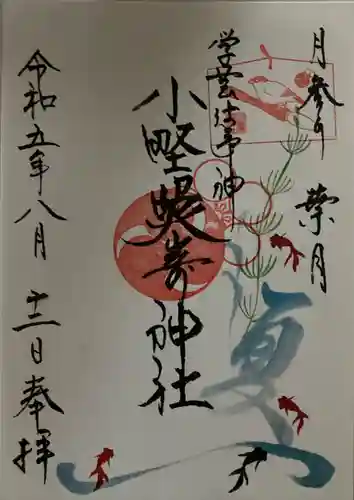 月参り 葉月
学芸
神
小野照崎神社
夏
令和五年八月
十二日奉拝